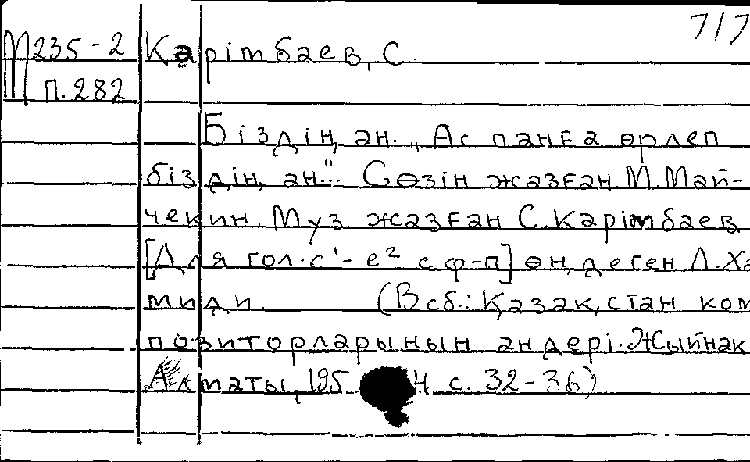 717
М235-2 Кәрімбаев, С.
П.282
Біздің ән. „Аспанға өрлеп
біздің ән". Сөзін жазған М. Май-
чекин. Муз жазған С. Кәрімбаев
[Для гол. с'-е² с ф-п] өңдеген Л. Ха
миди. (В сб.: Қазақстан ком
позиторларының әндері. Жыйнақ
Алматы, 195 4 с. 32-36)